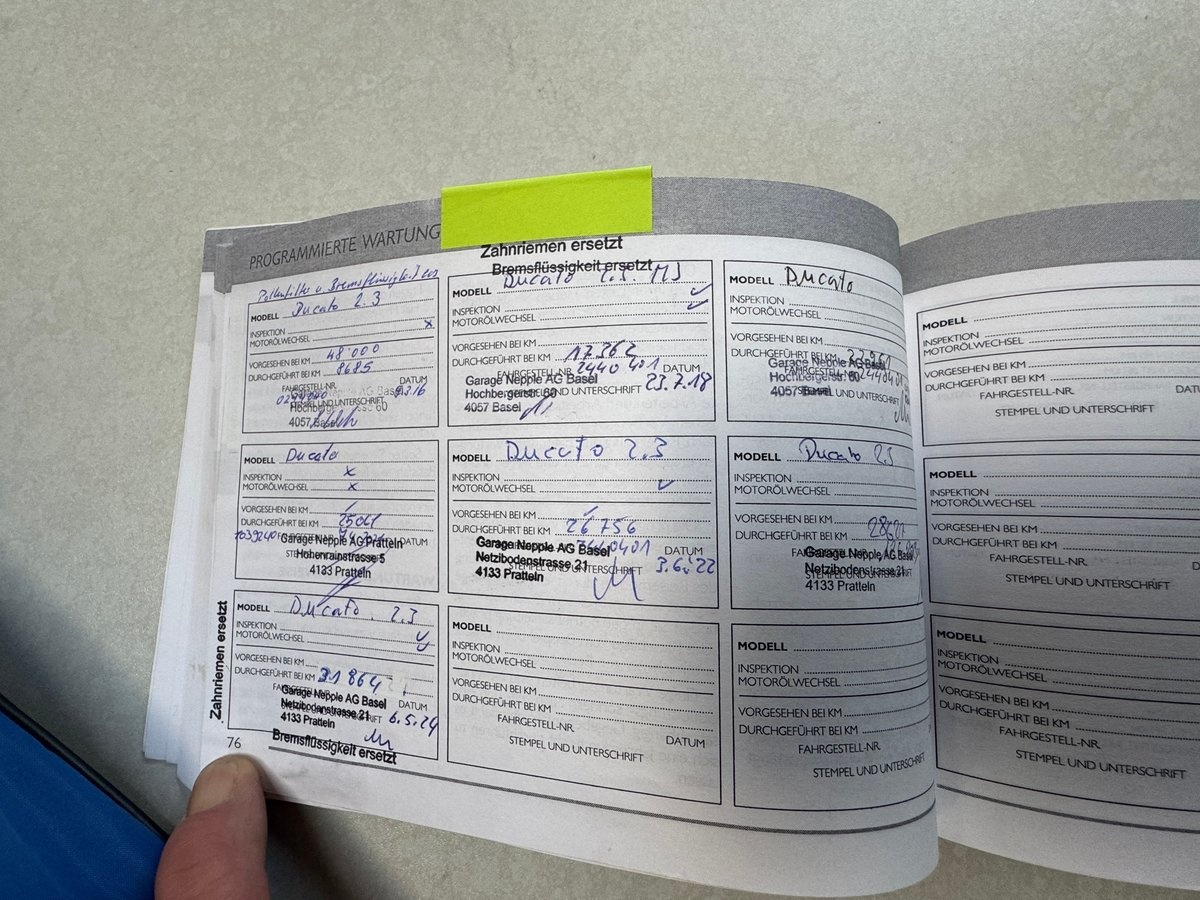 PROGRAMMIERTE WARTUNG
Pollenfilter u. Bremsflüssigkeit
MODELL Ducato 2.3
INSPEKTION x
MOTORÖLWECHSEL
VORGESEHEN BEI KM 48'000
DURCHGEFÜHRT BEI KM 8685
FAHRGESTELL-NR. DATUM
STEMPEL UND UNTERSCHRIFT
Garage Nepple AG Basel
Hochbergerstrasse 60
4057 Basel
Zahnriemen ersetzt
Bremsflüssigkeit ersetzt
MODELL Ducato
INSPEKTION ✓
MOTORÖLWECHSEL ✓
VORGESEHEN BEI KM
DURCHGEFÜHRT BEI KM 17362
FAHRGESTELL-NR. 2440401
Garage Nepple AG Basel
UNTERSCHRIFT 23.7.18
Hochbergerstr. 60
4057 Basel
MODELL Ducato
INSPEKTION
MOTORÖLWECHSEL
VORGESEHEN BEI KM
DURCHGEFÜHRT BEI KM
FAHRGESTELL-NR. 2440401
Garage Nepple AG Basel
Hochbergerstr. 60
4057 Basel
MODELL Ducato
INSPEKTION x
MOTORÖLWECHSEL x
VORGESEHEN BEI KM
DURCHGEFÜHRT BEI KM
DATUM
Garage Nepple AG Pratteln
Hohenrainstrasse 5
4133 Pratteln
MODELL Ducato 2.3
INSPEKTION
MOTORÖLWECHSEL ✓
VORGESEHEN BEI KM
DURCHGEFÜHRT BEI KM 26756
2440401 DATUM
Garage Nepple AG Basel
Netzibodenstrasse 21
STEMPEL UND UNTERSCHRIFT 3.6.22
4133 Pratteln
MODELL Ducato 2.3
INSPEKTION
MOTORÖLWECHSEL
VORGESEHEN BEI KM
DURCHGEFÜHRT BEI KM
Garage Nepple AG Basel
Netzibodenstrasse 21
4133 Pratteln
Zahnriemen ersetzt
MODELL Ducato 2.3
INSPEKTION ✓
MOTORÖLWECHSEL ✓
VORGESEHEN BEI KM
DURCHGEFÜHRT BEI KM 31864
DATUM
Garage Nepple AG Basel
Netzibodenstrasse 21
6.5.24
4133 Pratteln
Bremsflüssigkeit ersetzt
MODELL
INSPEKTION
MOTORÖLWECHSEL
VORGESEHEN BEI KM
DURCHGEFÜHRT BEI KM
FAHRGESTELL-NR. DATUM
STEMPEL UND UNTERSCHRIFT
MODELL
INSPEKTION
MOTORÖLWECHSEL
VORGESEHEN BEI KM
DURCHGEFÜHRT BEI KM
FAHRGESTELL-NR.
STEMPEL UND UNTERSCHRIFT
76
MODELL
INSPEKTION
MOTORÖLWECHSEL
VORGESEHEN BEI KM
DURCHGEFÜHRT BEI KM
FAHRGESTELL-NR.
STEMPEL UND UNTERSCHRIFT
MODELL
INSPEKTION
MOTORÖLWECHSEL
VORGESEHEN BEI KM
DURCHGEFÜHRT BEI KM
FAHRGESTELL-NR.
STEMPEL UND UNTERSCHRIFT
MODELL
INSPEKTION
MOTORÖLWECHSEL
VORGESEHEN BEI KM
DURCHGEFÜHRT BEI KM
FAHRGESTELL-NR.
STEMPEL UND UNTERSCHRIFT